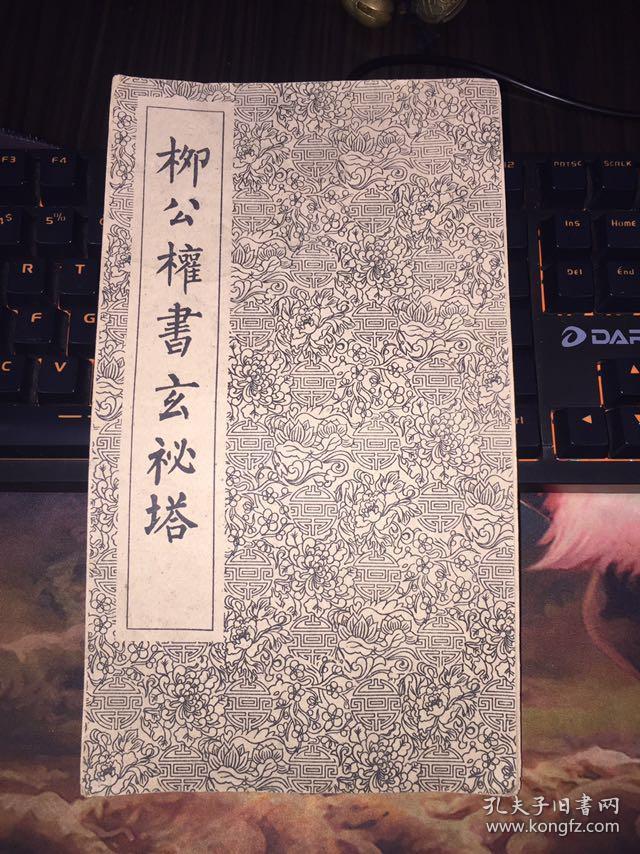 柳公權書玄祕塔
F3 F4 12 PRTSC SCRLK
4 $ 5 %
R T Ins Home
F G Del End
C V
DAR
孔夫子旧书网
www.kongfz.com